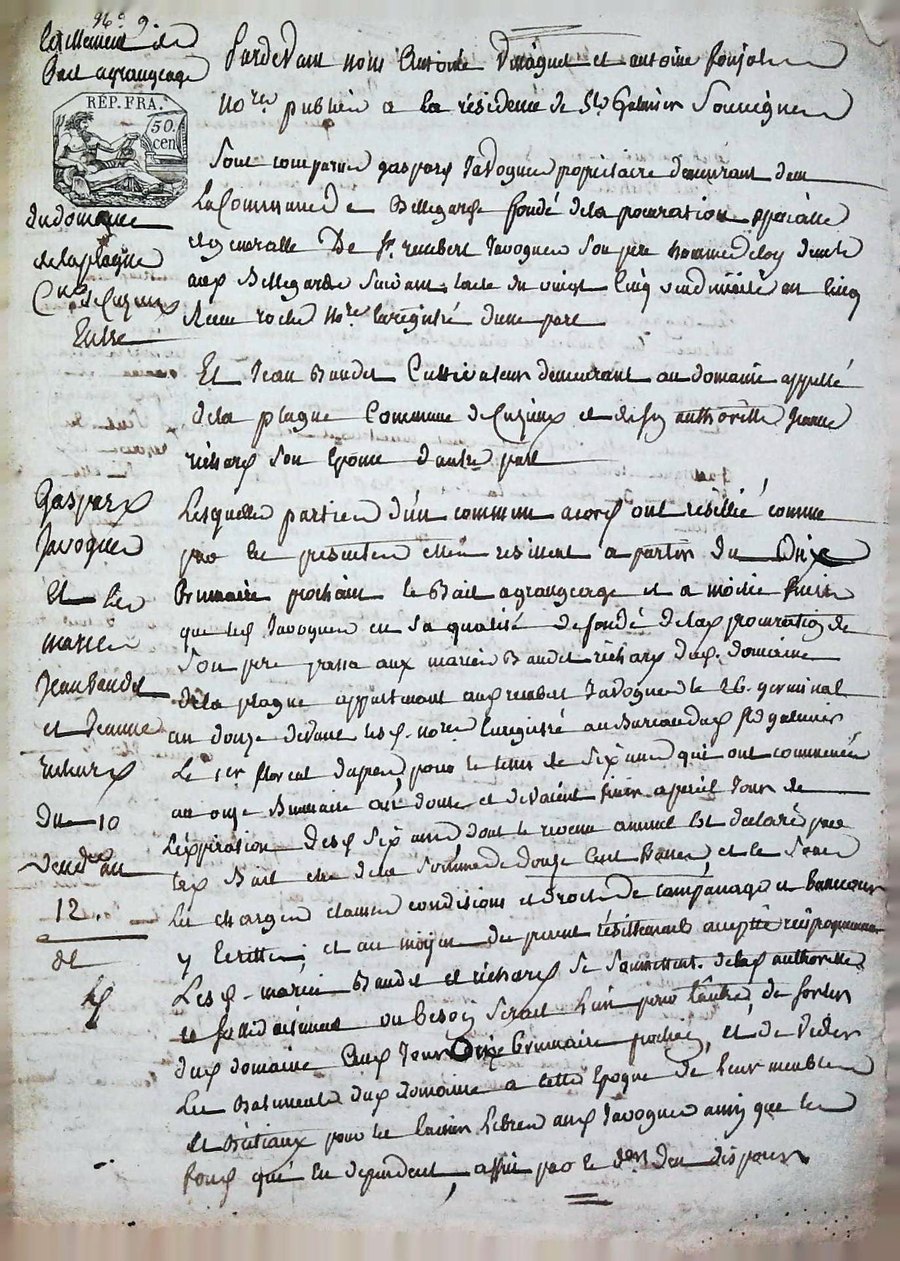 96. 9
Résiliement de
Bail a grangeage
RÉP. FRA.
50.
cen
du domaine
de la plagne
Cne de Cuzieux
Entre
Gaspard
Javogues
Et les
mariés
Jean Baudet
et Jeanne
richard
Du 10
Vendre an
12.
Pardevant nous Antoine et antoine
Nores publics a la résidence de St Galmier Soussignés
Sont comparus gaspard Javogues propriétaire demeurant dans
La Commune de Bellegarde fondé de la procuration spécialle
et generalle De Sr rembert Javogues Son père homme de loy demt
aud Bellegarde Suivant lacte du vingt cinq vendémiaire an cinq
Reçu roche Nore Enregistré dune part
Et Jean Baudet Cultivateur demeurant au domaine appellé
de la plagne Commune de Cuzieux et de sy authorisée Jeanne
richard Son Epouse dautre part
Lesquelles parties d'un commun acord ont résillié comme
par les presentes elles résilient a partir du Onze
Brumaire prochain le Bail a grangeage et a moitié fruits
que led Javogues en Sa qualité de fondé de lad procuration de
Son père passa aux mariés Baudet richard dud. domaine
de la plagne appartenant aud rembert Javogues le 26. germinal
an douze devant lesd. nores Enregistré au Bureau dud St galmier
Le 1er floreal dapres, pour le tems de Six ans qui ont commencés
au onze Brumaire an douze et devaient finir apareil Jour de
l'expiration desd Six ans, dont le revenu annuel Est déclaré par
led Bail etre de la Somme de douze Cent francs, et le Sous
Les charges clauses conditions et droit de campanage et
y Ecrittes, et au moyen du present résiliement accepté réciproquement
Lesd. mariés Baudet et richard Se Soumettent. de lad authorité
et Solidairement ou besoin Serait L'un pour l'autre, de Sortir
dud domaine Aud Jour Onze Brumaire prochain, et de Vuider
Les Batiments dud domaine a cette Epoque de Leurs meubles
et Béstiaux pour les laisser Libres aud Javogues ainsy que les
fonds qui En dependent, affin par le dr den disposer